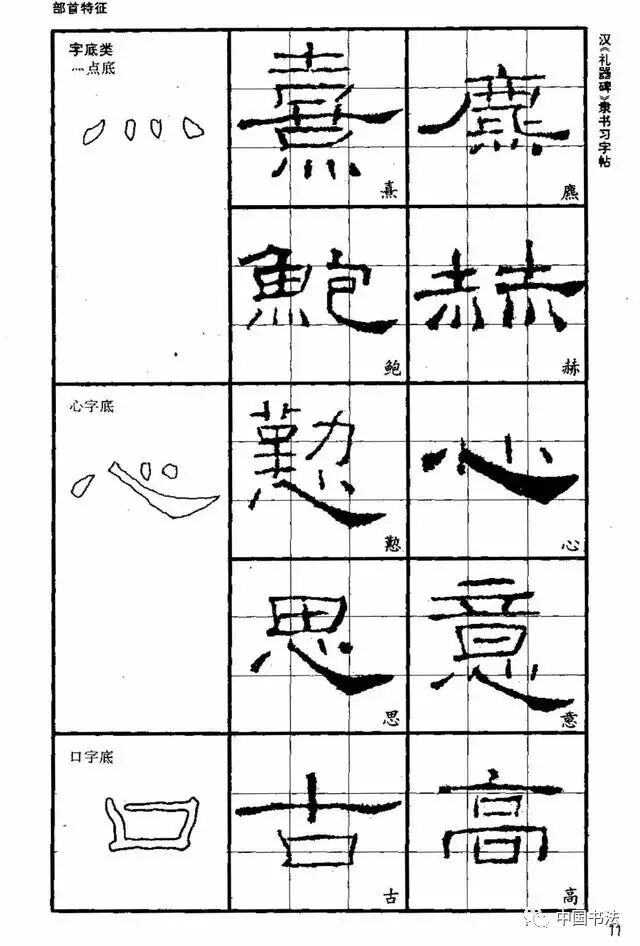 部首特征
汉《礼器碑》隶书习字帖
字底类
灬点底
灬
熹
熹
麃
麃
鮑
鲍
赫
赫
心字底
心
懃
懃
心
心
思
思
意
意
口字底
口
古
古
高
高
中国书法
11